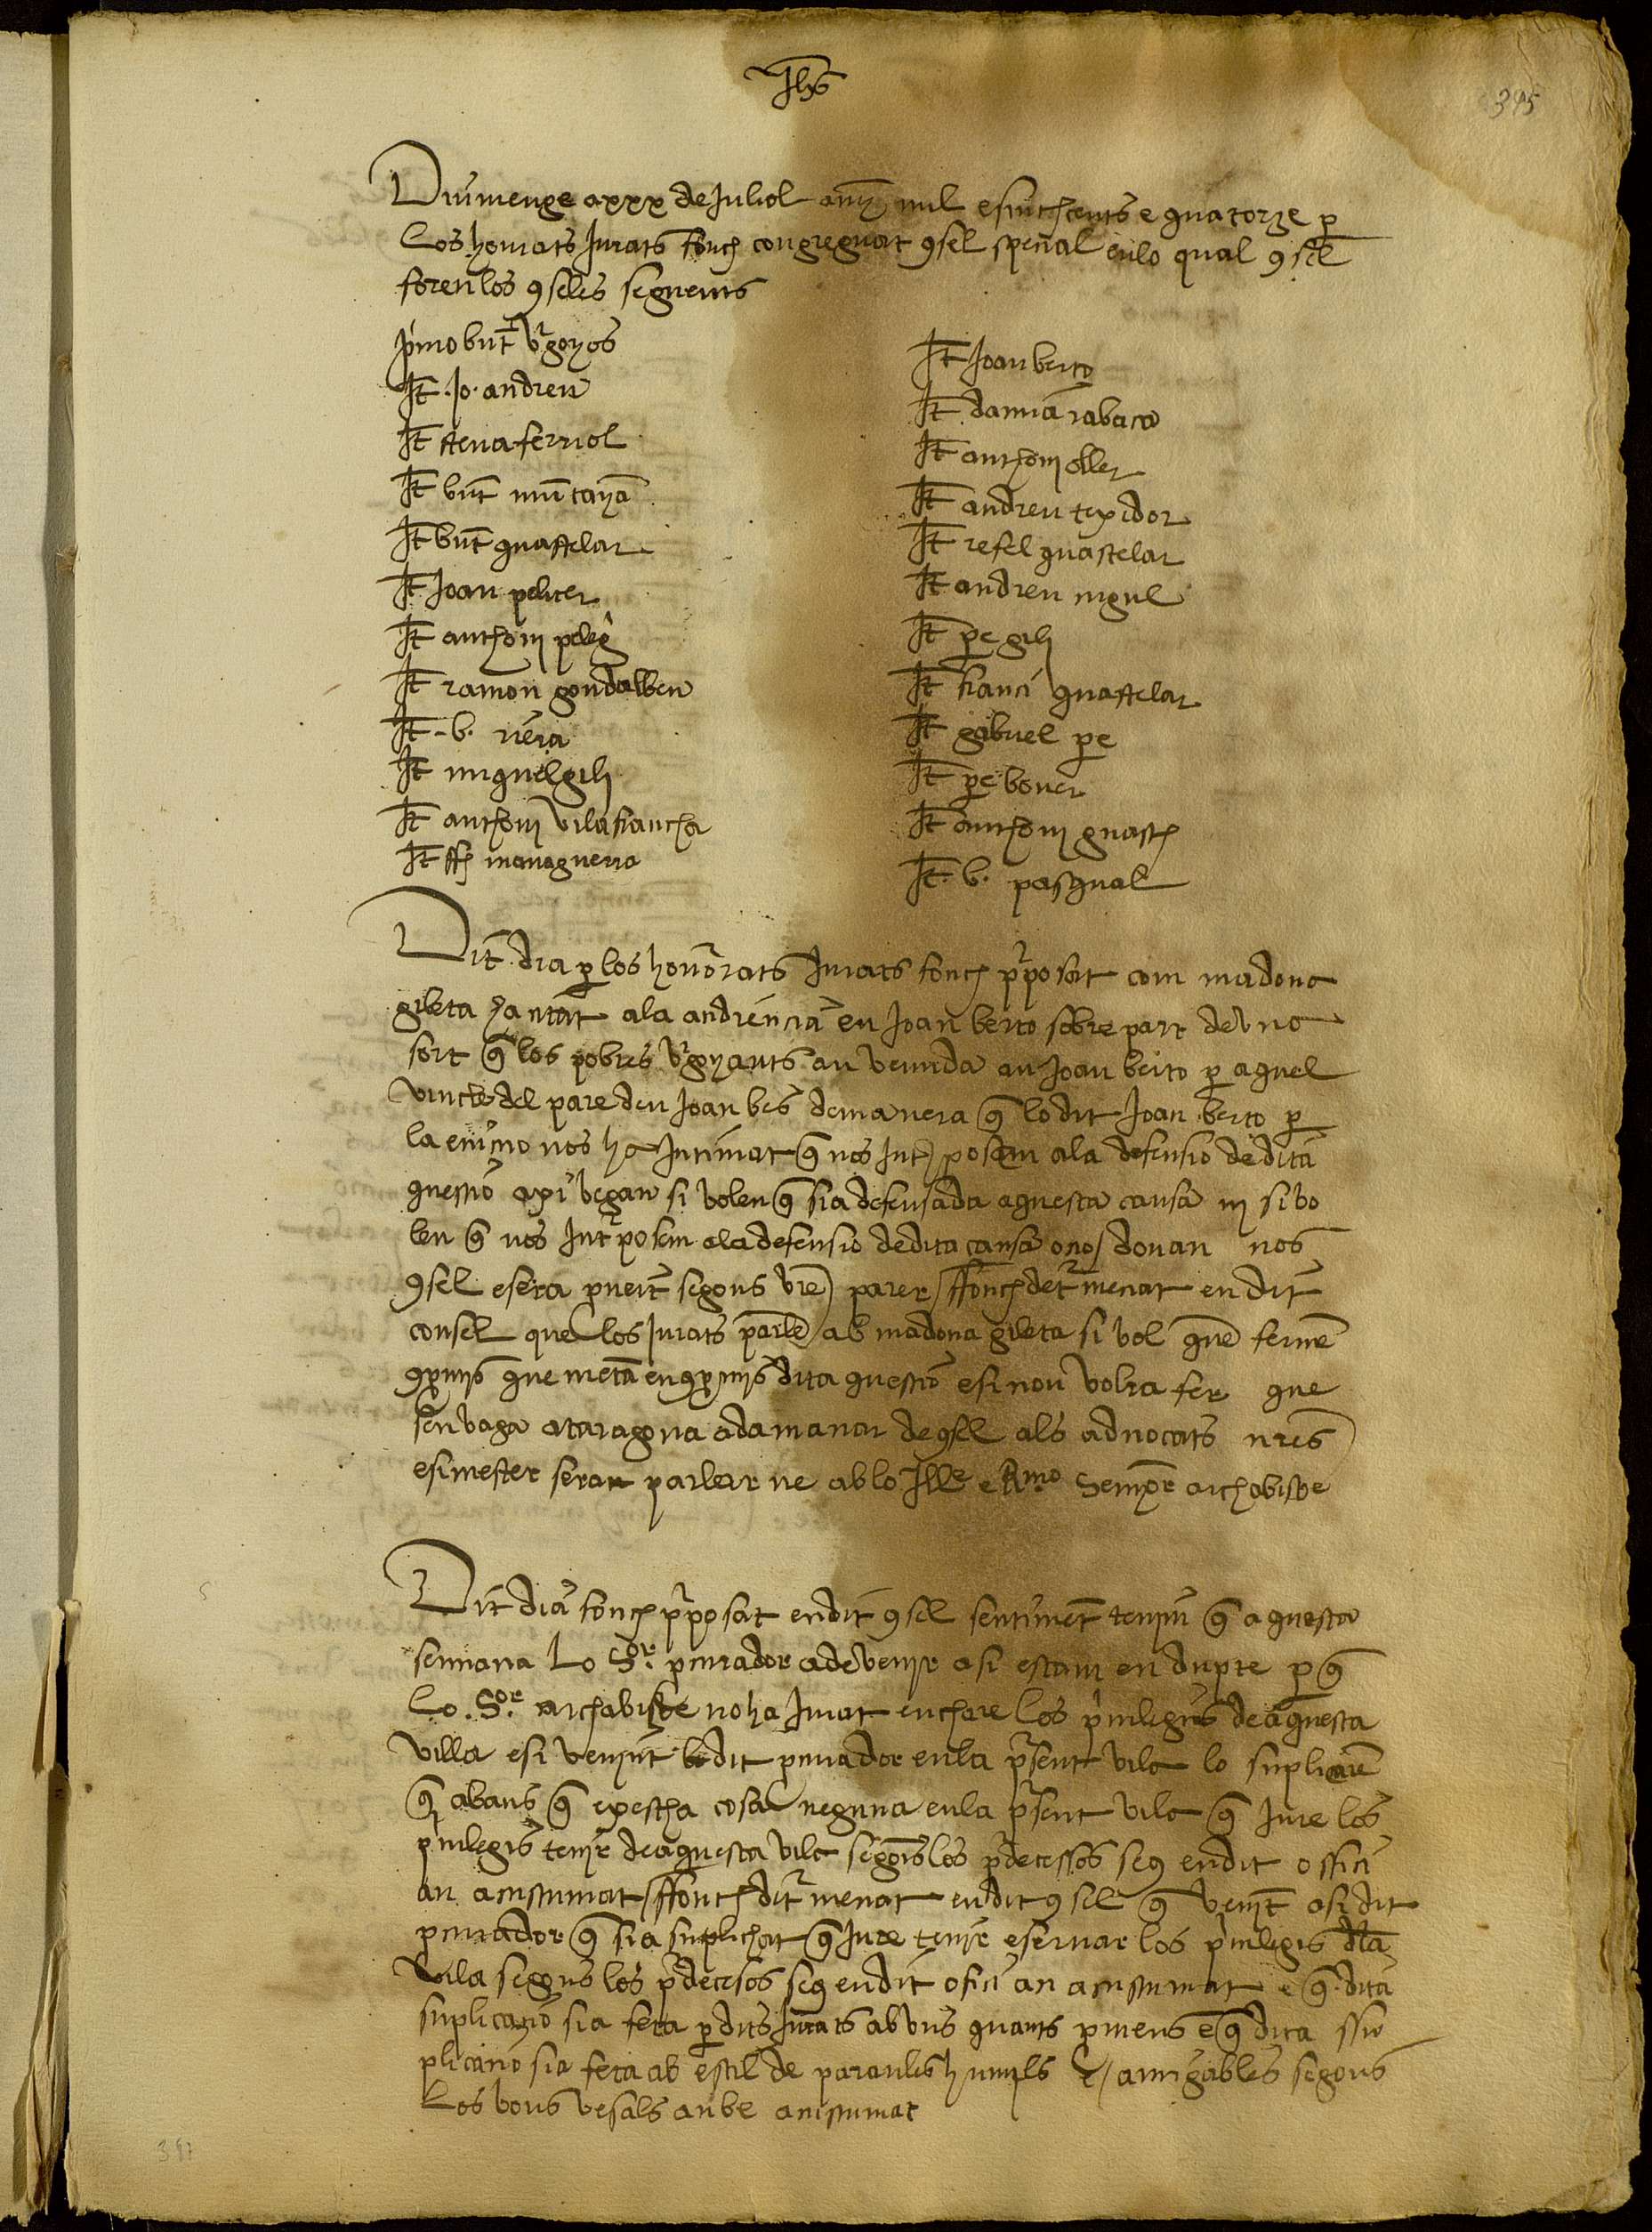 Jhs
395
Diumenge a xxx de Juliol any mil e sinchcents e quatorze per
los honrats Jurats fonch congreguat 9sel special en lo qual 9sel
foren los 9selés seguents
primo bnt vrgonyos
It Jo. andreu
It steva ferriol
It bnt muntanya
It bnt guastelar
It Joan peliser
It anthoni peleg
It ramon gondalbeu
It b. riera
It miquel gili
It anthoni vilafrancha
It ffr managuerra
It Joan berto
It damia rabaca
It anthoni oller
It andreu texidor
It refel guastelar
It andreu nigul
It pere gili
It franci guastelar
It gabriel pere
It pere bover
It anthoni guasch
It b. pasqual
Dit dia per los honorats Jurats fonch pposat com madona
gileta ha citat a la audiencia en Joan berto sobre part de una
sort q los pobres vrgonyants an venuda an Joan berto per aquel
vincle del pare den Joan bes de manera q lo dit Joan berto per
la eviccio nos ha Intimat q nos Int posem a la defensio de dita
questio axi vegan si volen q sia defensada aquesta causa ni si vo
len q nos Intposem a la defensio de dita causa o nos donan nos
9sel e sera proveit segons vre parer / ffonch detrmenat en dit
consel que los Jurats parle ab madona gileta si vol quen fermen
9pmis que meta en 9pmis dita questio e si nou volra fer que
sen vaga a taragona a damanar de 9sel als advocats nres
e si mester sera parlar ne ab lo Ille e Rmo Senyor archabisbe
Dit dia fonch pposat en dit 9sel sentiment tenim q aquesta
semana Lo Sor. procurador a de venir asi estam en dupte per q
Lo Sor. archabisbe no ha Jurat enchare los privilegis de aquesta
villa e si venint lo dit procurador en la present vila lo suplicare
q abans q exescha cosa neguna en la present vila q Jure los
privilegis tenir de aquesta vila segons los predecessos seus en dit offici
an acustumat / ffonch ditrmenat en dit 9sel q venint asi dit
procurador q sia suplichat q Jure tenir e servar los privilegis dla
vila segons los predecesos seus en dit ofici an acustumat e q dita
suplicazio sia feta per dits Jurats ab uns quants promens e q dita ssu
plicacio sia feta ab estil de paraules humils e amigables segons
Los bons vesals an be acustumat
397